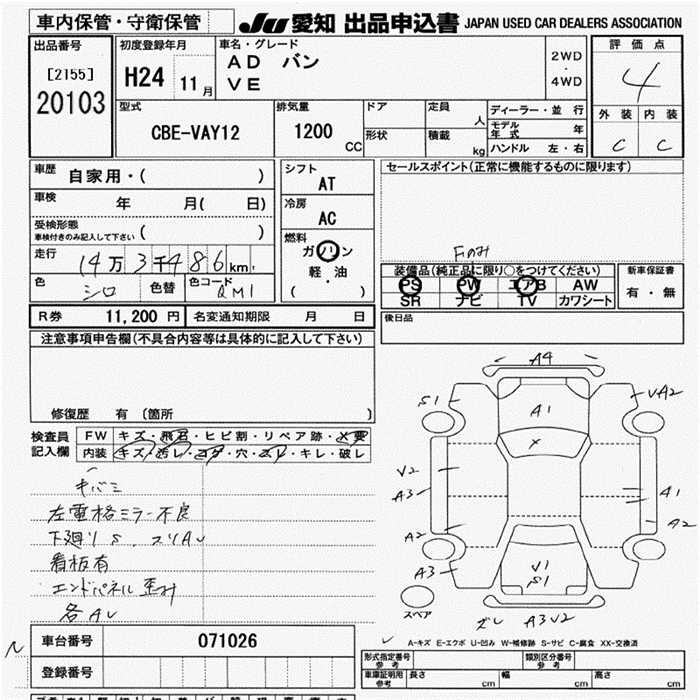 車内保管・守衛保管
JU 愛知 出品申込書 JAPAN USED CAR DEALERS ASSOCIATION
出品番号
[2155]
20103
初度登録年月
H24 11月
車名・グレード
AD バン
VE
2WD
・
4WD
評価点
4
外装 内装
C C
型式
CBE-VAY12
排気量
1200 CC
ドア
形状
定員 人
積載 kg
ディーラー・並行
モデル年式 年
ハンドル 左・右
車歴 自家用・( )
車検 年 月( 日)
受検形態
車検付きのみ記入して下さい ( )
走行 14万3千486km
色 シロ 色替 色コード QM1
シフト
AT
冷房
AC
燃料
ガソリン
軽・油
( )
セールスポイント(正常に機能するものに限ります)
Fのみ
装備品(純正品に限り○をつけてください)
PS PW エアB AW
SR ナビ TV カワシート
新車保証書
有・無
R券 11,200円 名変通知期限 月 日
後日品
注意事項申告欄(不具合内容等は具体的に記入して下さい)
修復歴 有 (箇所 )
検査員
記入欄
FW キズ・飛石・ヒビ割・リペア跡・X要
内装 キズ・汚レ・コゲ・穴・スレ・キレ・破レ
キバミ
左電格ミラー不良
下廻りS、スリAU
看板有
エンドパネル歪み
各AU
A4
S1
A1
UA2
X
V2
A3
A1
A2
A2
A3
V1
S1
スペア
ズレ A3V2
A-キズ E-エクボ U-凹み W-補修跡 S-サビ C-腐食 XX-交換済
車台番号 071026
登録番号
形式指定番号
参考
類別区分番号
参考
車庫証明用
参考
長さ cm 幅 cm 高さ cm